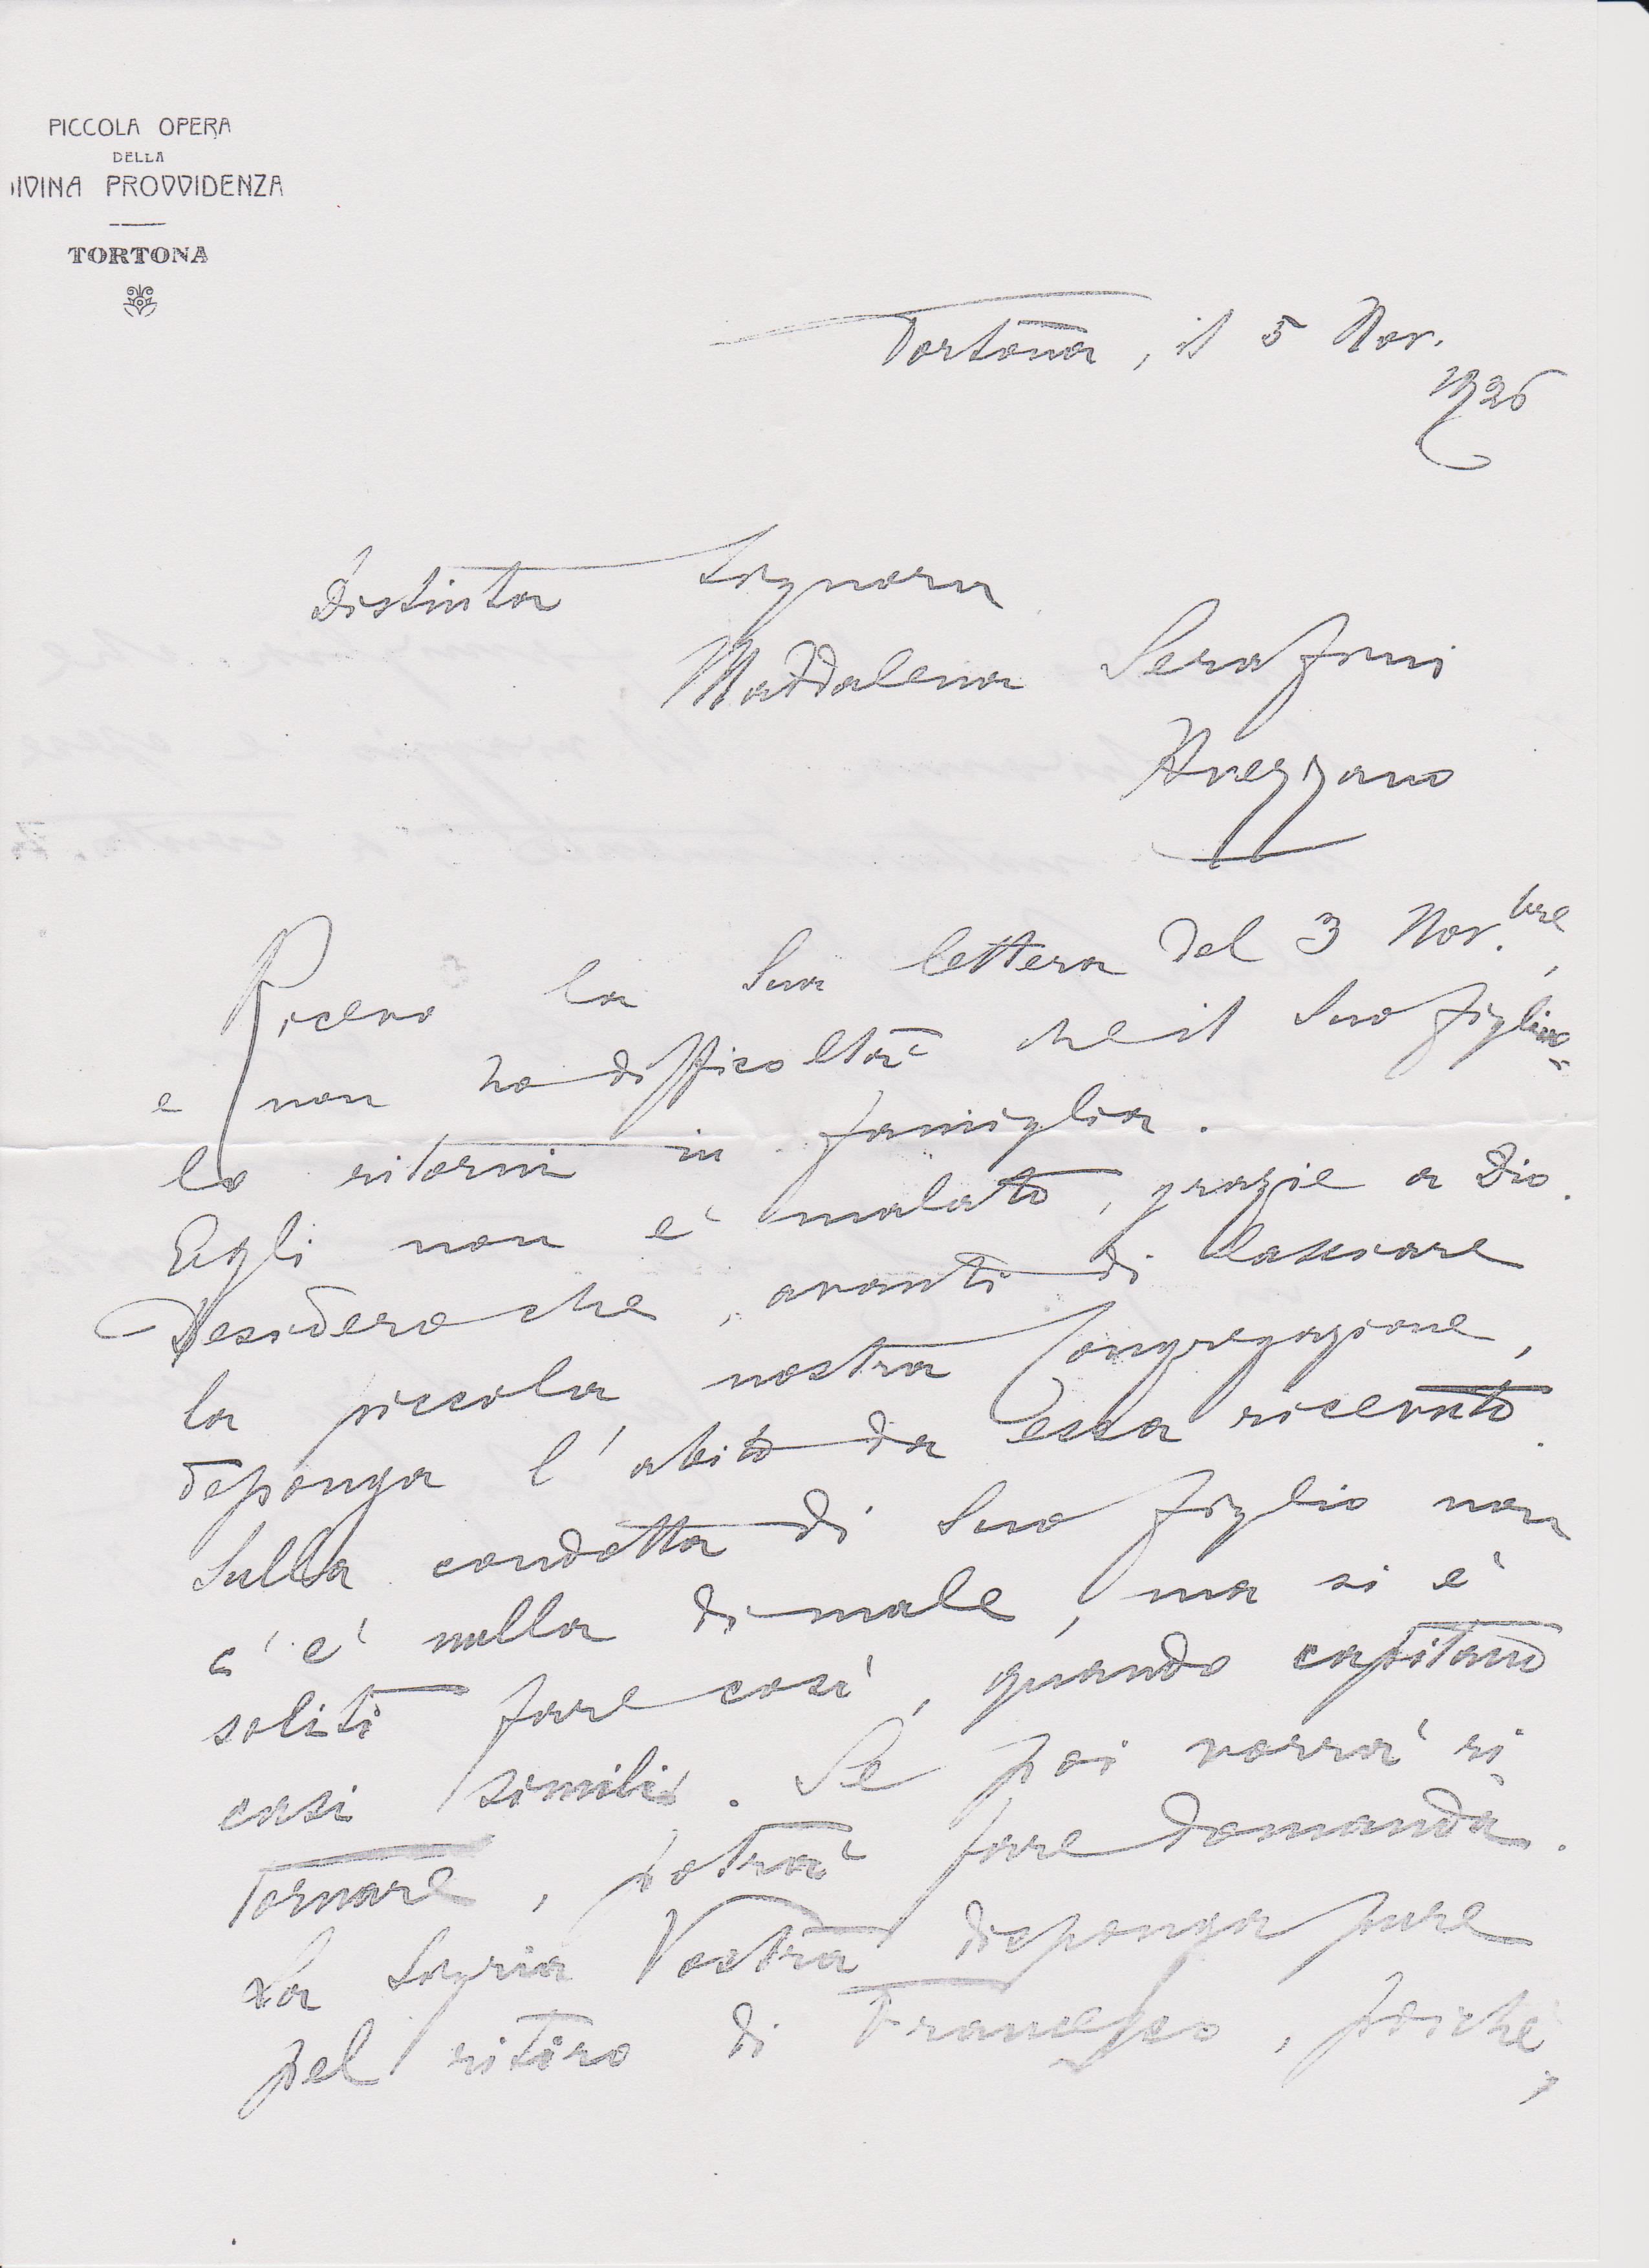 PICCOLA OPERA
DELLA
DIVINA PROVVIDENZA
TORTONA
Tortona, il 5 Nov.
1926
Distinta Signora
Maddalena Serafini
Avezzano
Ricevo la Sua lettera del 3 Nov.bre,
e non ho difficoltà che il Suo figliuo=
lo ritorni in famiglia.
Egli non è malato, grazie a Dio.
Desidero che, avanti di lasciare
la piccola nostra Congregazione,
deponga l'abito da essa ricevuto.
Sulla condotta di Suo figlio non
c'è nulla di male, ma si è
soliti fare così, quando capitano
casi simili. Se poi vorrà ri
tornare, potrà fare domanda.
La Sig.ria Vostra disponga pure
pel ritiro di Francesco, poiché,